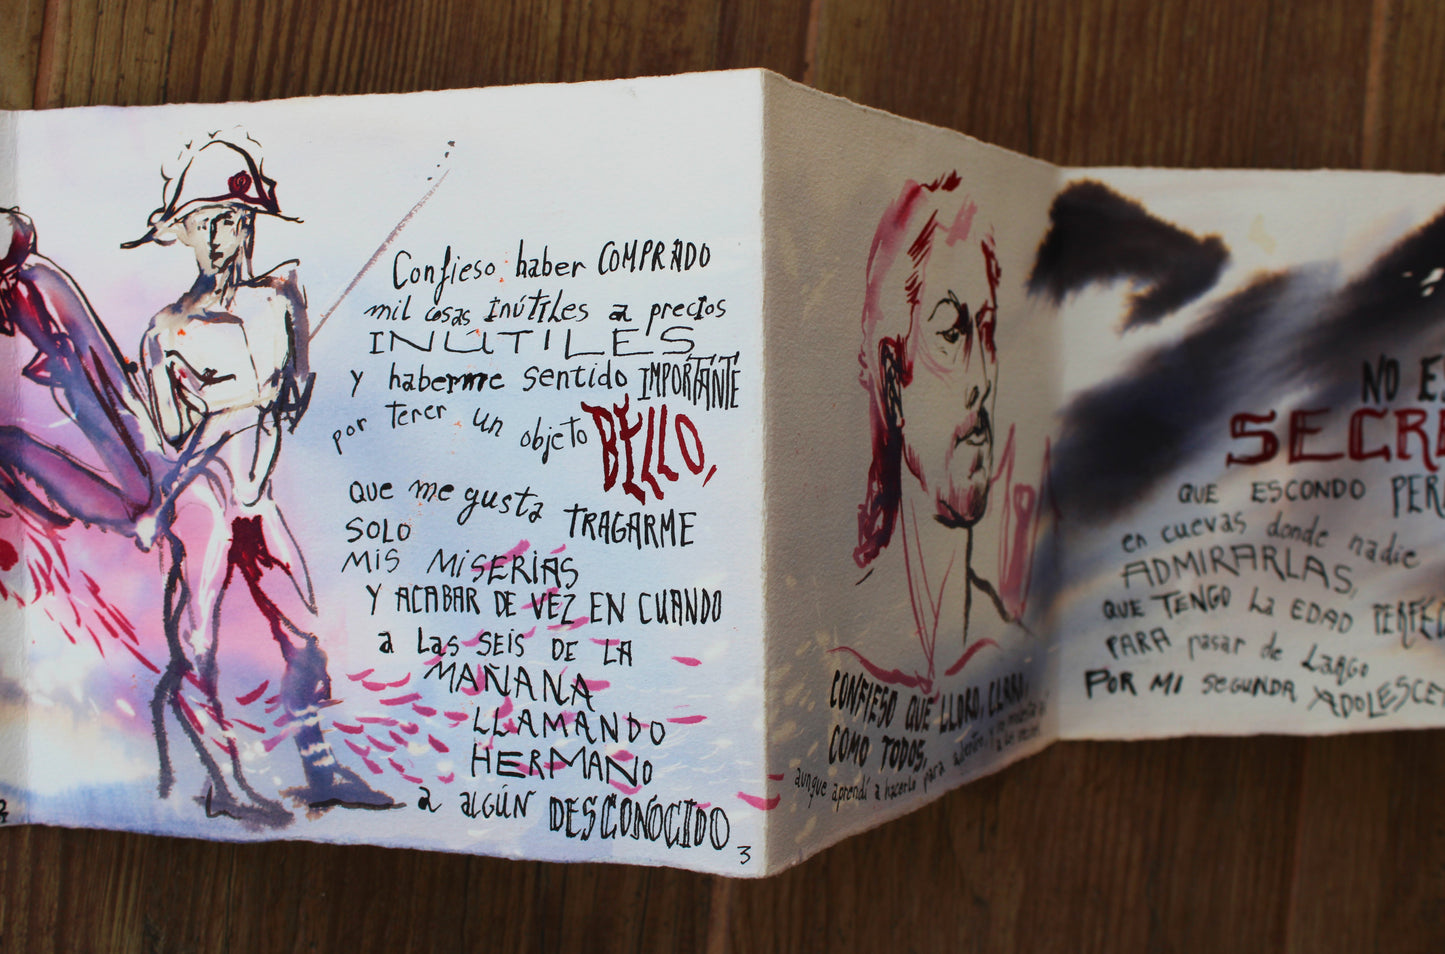 Confieso haber COMPRADO
mil cosas INÚTILES a precios
INÚTILES
y haberme sentido IMPORTANTE
por tener un objeto BELLO,
QUE me gusta TRAGARME
SOLO
MIS MISERIAS
Y ACABAR DE VEZ EN CUANDO
a LAS SEIS DE LA
MAÑANA
LLAMANDO
HERMANO
a ALGÚN DESCONOCIDO
3
CONFIESO QUE LLORO, CLARO,
COMO TODOS,
aunque aprendí a hacerlo para adentro, y
NO
SECRE
QUE ESCONDO
en cuevas donde nadie
ADMIRARLAS,
QUE TENGO LA EDAD PERFEC
PARA pasar de LARGO
POR MI SEGUNDA ADOLESCE